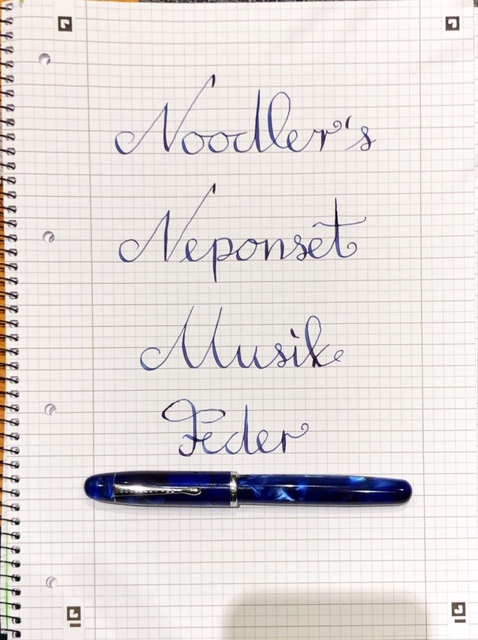 Noodler's
Neponset
Musik
Feder